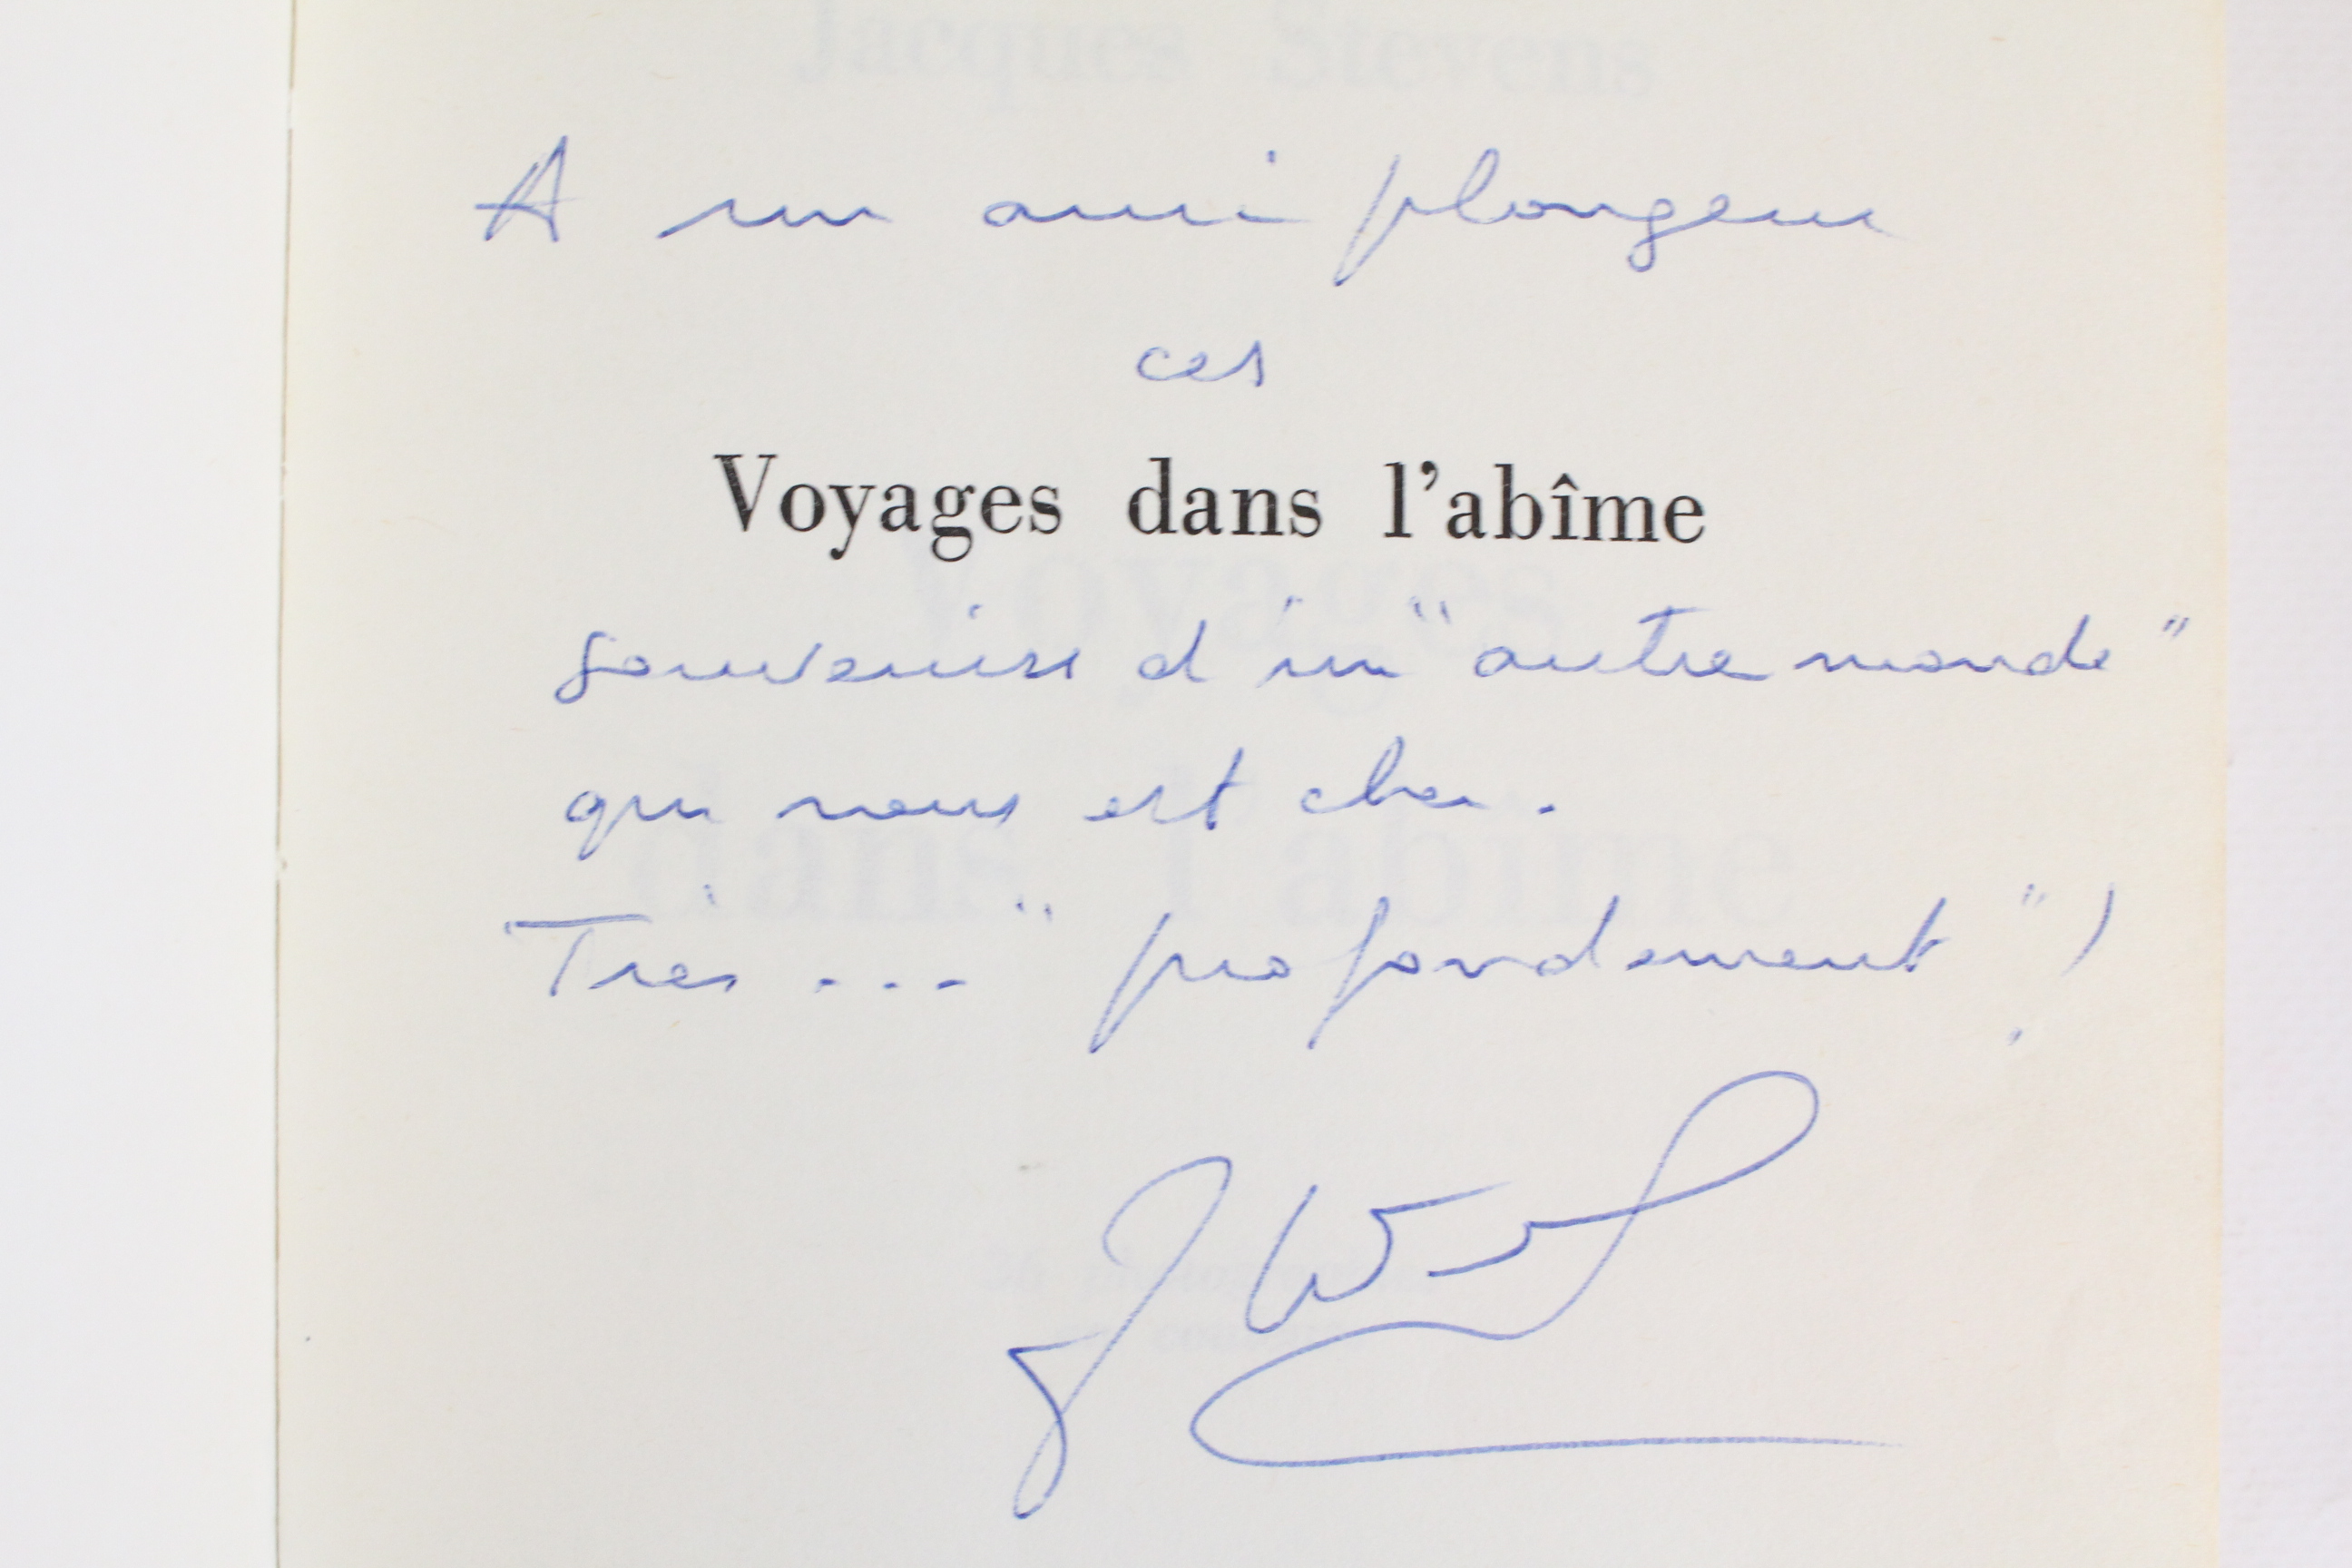 Jacques Stevens
A un ami plongeur
ces
Voyages dans l'abîme
Voyages
souvenirs d'un "autre monde"
qui nous est cher.
dans l'abîme
Très... "profondément"!